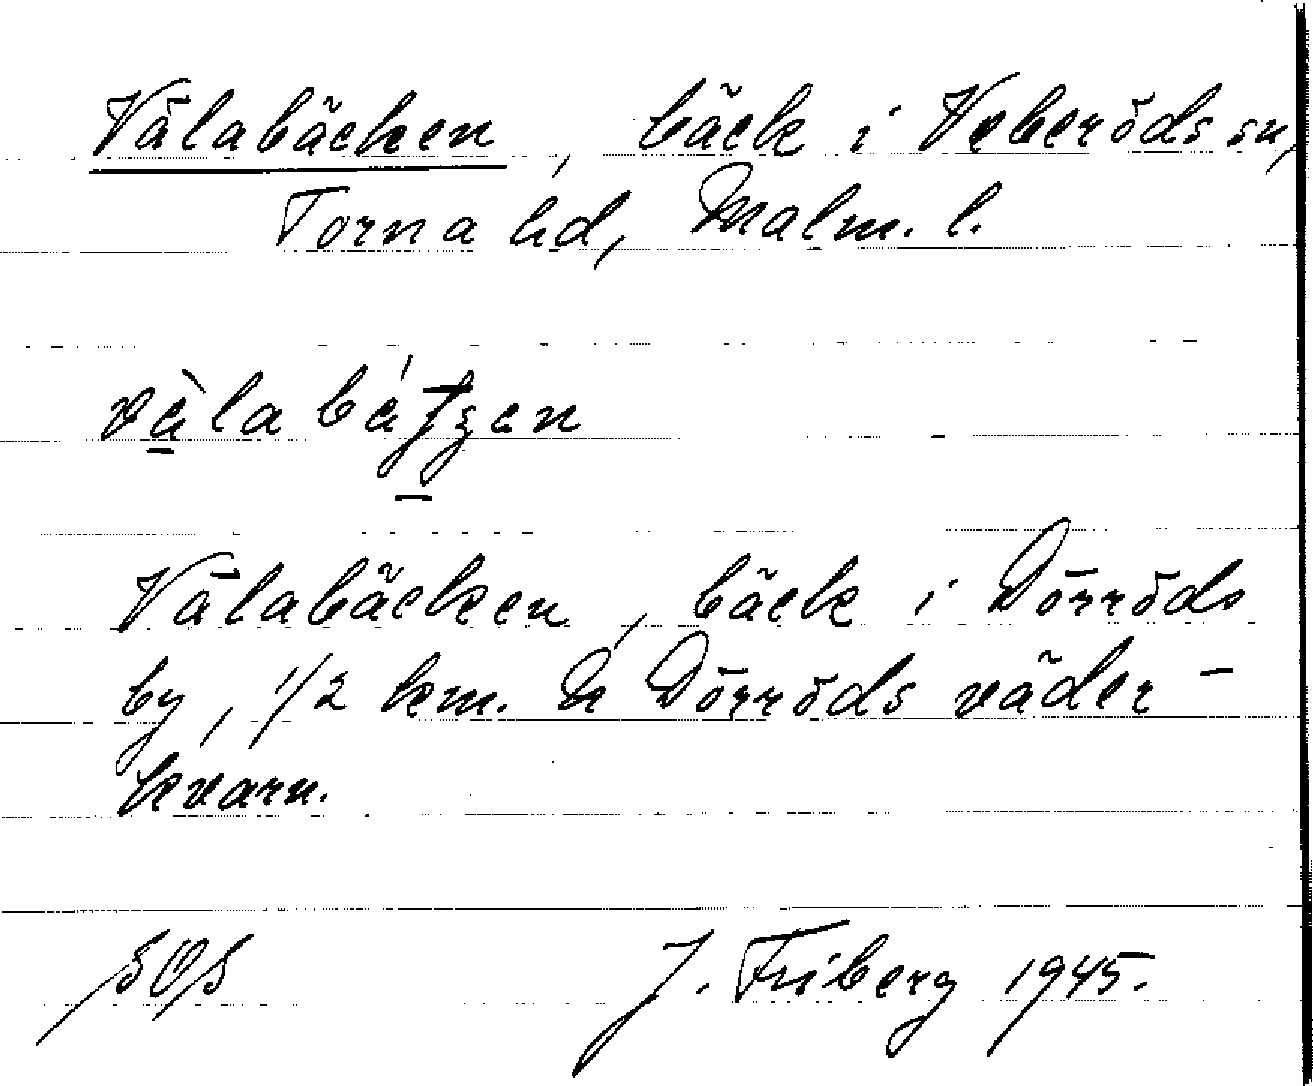 Vålabäcken, bäck i Veberöds sn,
Torna hd, Malm. l.
Vålabäcken, bäck i Dörröds
by, 1/2 km. N Dörröds väder-
kvarn.
SOS J. Friberg 1945.